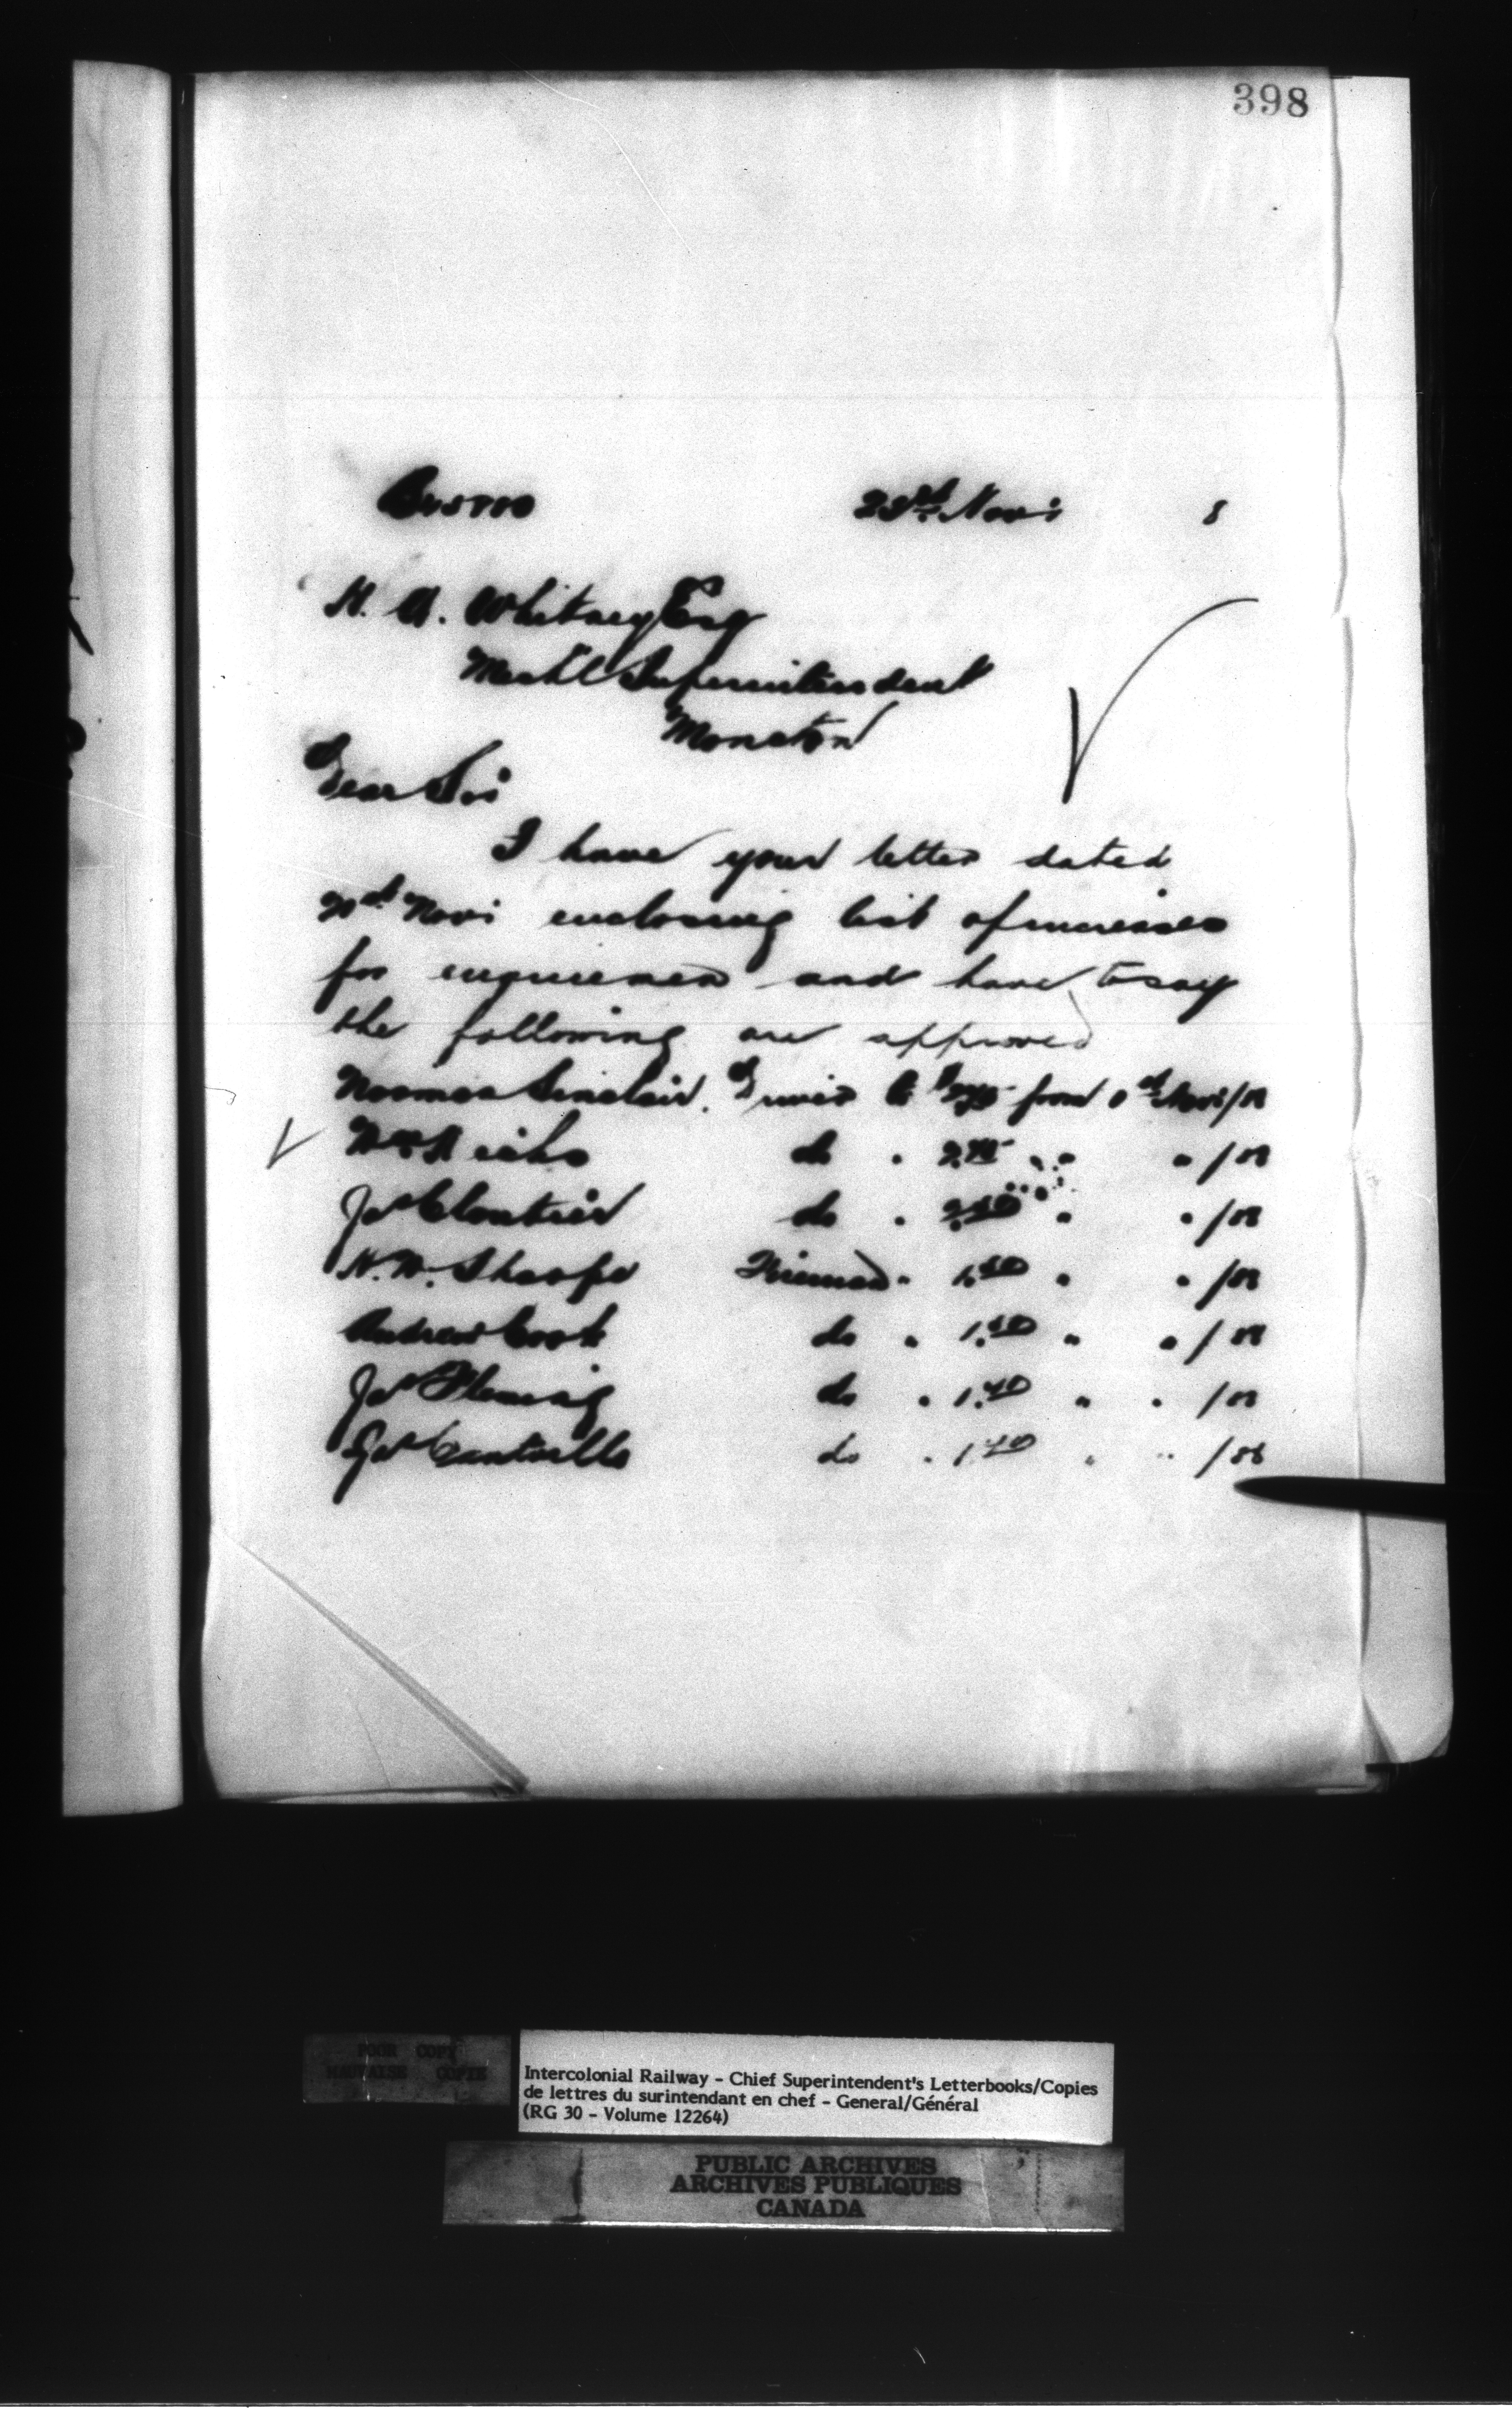 398
23rd Novr 8
H. A. Whitney Esq
Mechl Superintendent
Moncton
Dear Sir
I have your letter dated
Novr enclosing list of increases
for enginemen and have to say
the following are approved
Norman Sinclair. Driver to from Novr/88
Wm do " " " /88
Jas Cloutier do " " " /88
N. W. Sharpe Fireman " 1. " " /88
Andrew Cook do " 1. " " /88
Jas Fleming do " 1.40 " " /88
do " 1.40 " " /88
POOR COPY
MAUVAISE COPIE
Intercolonial Railway - Chief Superintendent's Letterbooks/Copies
de lettres du surintendant en chef - General/Général
(RG 30 - Volume 12264)
PUBLIC ARCHIVES
ARCHIVES PUBLIQUES
CANADA